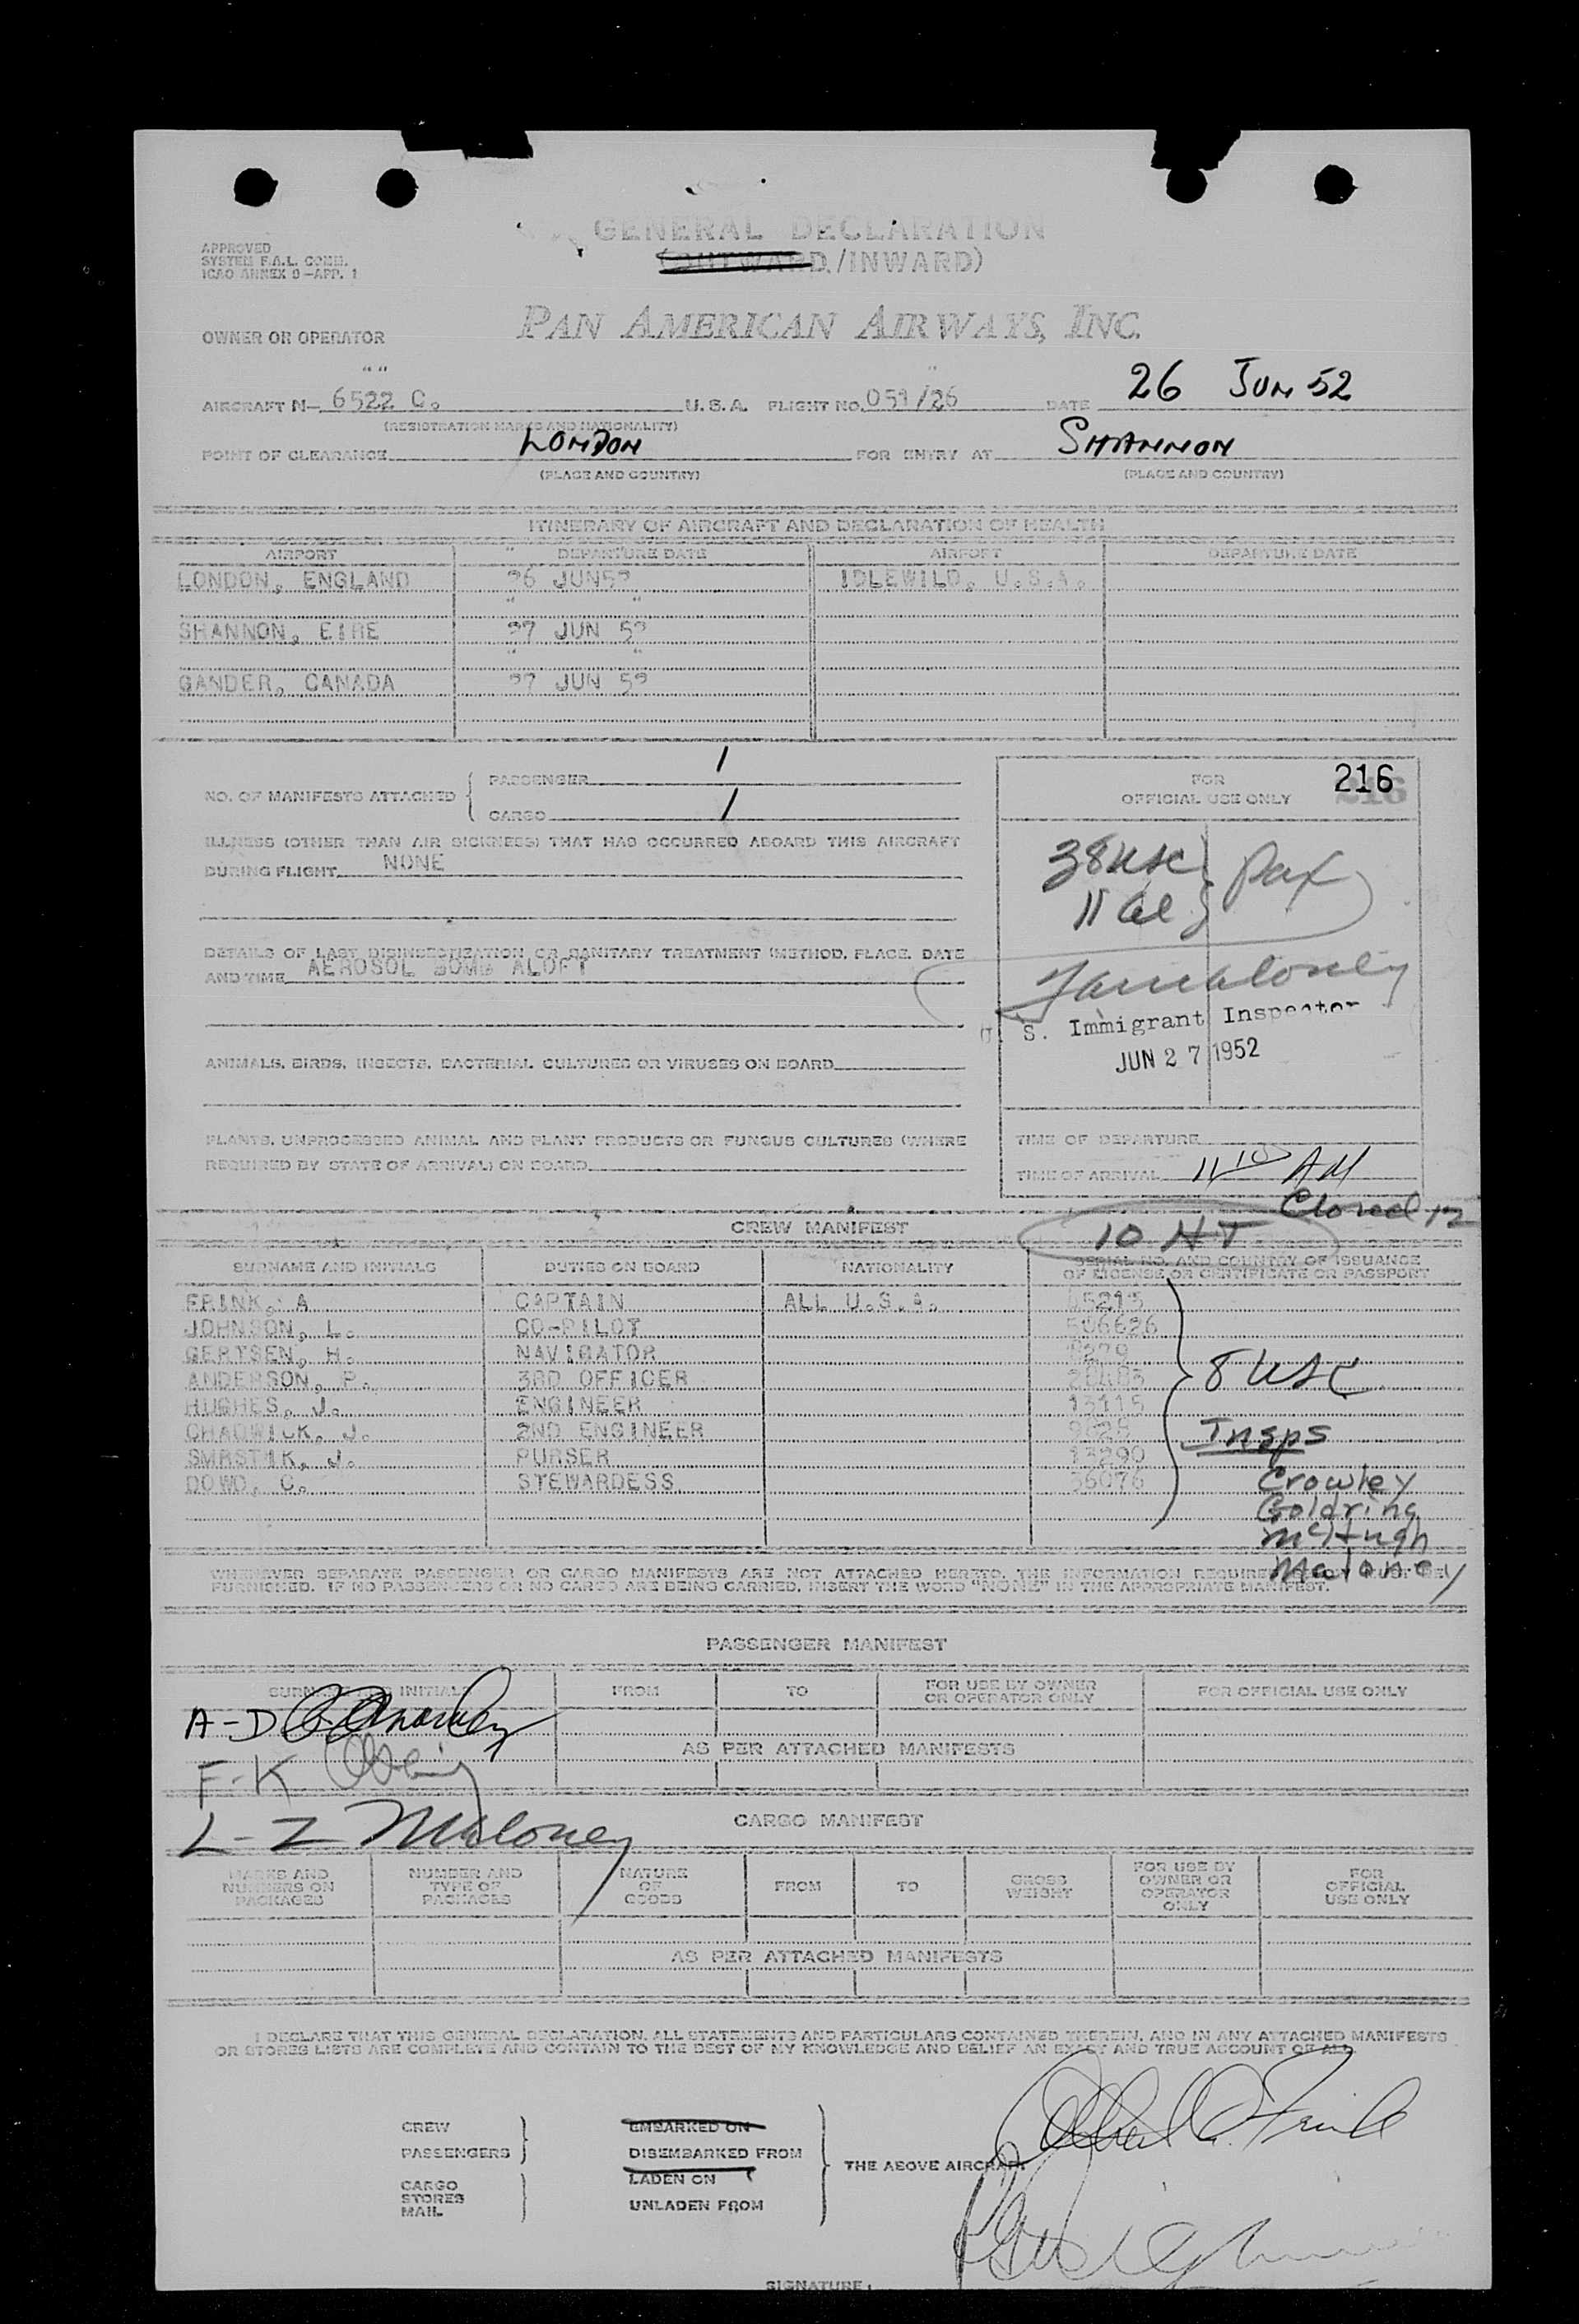 GENERAL DECLARATION
(OUTWARD/INWARD)
APPROVED
SYSTEM F.A.L. COMM.
ICAO ANNEX 9-APP. 1
OWNER OR OPERATOR PAN AMERICAN AIRWAYS, INC.
AIRCRAFT N- 6522 C. U.S.A. FLIGHT NO. 051/26 DATE 26 JUN 52
(REGISTRATION MARKS AND NATIONALITY)
POINT OF CLEARANCE LONDON FOR ENTRY AT SHANNON
(PLACE AND COUNTRY) (PLACE AND COUNTRY)
ITINERARY OF AIRCRAFT AND DECLARATION OF HEALTH
AIRPORT DEPARTURE DATE AIRPORT DEPARTURE DATE
LONDON, ENGLAND 26 JUN52 IDLEWILD, U.S.A.
SHANNON, EIRE 27 JUN 52
GANDER, CANADA 27 JUN 52
NO. OF MANIFESTS ATTACHED
PASSENGER 1
CARGO 1
ILLNESS (OTHER THAN AIR SICKNESS) THAT HAS OCCURRED ABOARD THIS AIRCRAFT
DURING FLIGHT NONE
DETAILS OF LAST DISINSECTIZATION OR SANITARY TREATMENT (METHOD, PLACE, DATE
AND TIME AEROSOL BOMB ALOFT
ANIMALS, BIRDS, INSECTS, BACTERIAL CULTURES OR VIRUSES ON BOARD
PLANTS, UNPROCESSED ANIMAL AND PLANT PRODUCTS OR FUNGUS CULTURES (WHERE
REQUIRED BY STATE OF ARRIVAL) ON BOARD
FOR
OFFICIAL USE ONLY
216
216
38 USC
11 al
Pax
Maloney
U. S. Immigrant Inspector
JUN 27 1952
TIME OF DEPARTURE
TIME OF ARRIVAL 11 10 AM
Closed 12
10 HT
CREW MANIFEST
SURNAME AND INITIALS DUTIES ON BOARD NATIONALITY SERIAL NO. AND COUNTRY OF ISSUANCE
OF LICENSE OR CERTIFICATE OR PASSPORT
FRINK, A CAPTAIN ALL U.S.A. 45213
JOHNSON, L. CO-PILOT 506626
GERTSEN, H. NAVIGATOR
ANDERSON, P. 3RD OFFICER
HUGHES, J. ENGINEER 13115
CHADWICK, J. 2ND ENGINEER
SMRSTIK, J. PURSER 13290
DOWD, C. STEWARDESS 36076
8 USC
Insps
Crowley
Goldring
McHugh
Maloney
WHENEVER SEPARATE PASSENGER OR CARGO MANIFESTS ARE NOT ATTACHED HERETO, THE INFORMATION REQUIRED MUST BE
FURNISHED. IF NO PASSENGERS OR NO CARGO ARE BEING CARRIED, INSERT THE WORD "NONE" IN THE APPROPRIATE MANIFEST.
PASSENGER MANIFEST
SURNAME AND INITIALS FROM TO FOR USE BY OWNER
OR OPERATOR ONLY FOR OFFICIAL USE ONLY
A-D
AS PER ATTACHED MANIFESTS
F-K
L-Z Maloney
CARGO MANIFEST
MARKS AND
NUMBERS ON
PACKAGES
NUMBER AND
TYPE OF
PACKAGES
NATURE
OF
GOODS
FROM
TO
GROSS
WEIGHT
FOR USE BY
OWNER OR
OPERATOR
ONLY
FOR
OFFICIAL
USE ONLY
AS PER ATTACHED MANIFESTS
I DECLARE THAT THIS GENERAL DECLARATION, ALL STATEMENTS AND PARTICULARS CONTAINED THEREIN, AND IN ANY ATTACHED MANIFESTS
OR STORES LISTS ARE COMPLETE AND CONTAIN TO THE BEST OF MY KNOWLEDGE AND BELIEF AN EXACT AND TRUE ACCOUNT OF ALL
CREW
PASSENGERS
CARGO
STORES
MAIL
EMBARKED ON
DISEMBARKED FROM
LADEN ON
UNLADEN FROM
THE ABOVE AIRCRAFT
SIGNATURE: